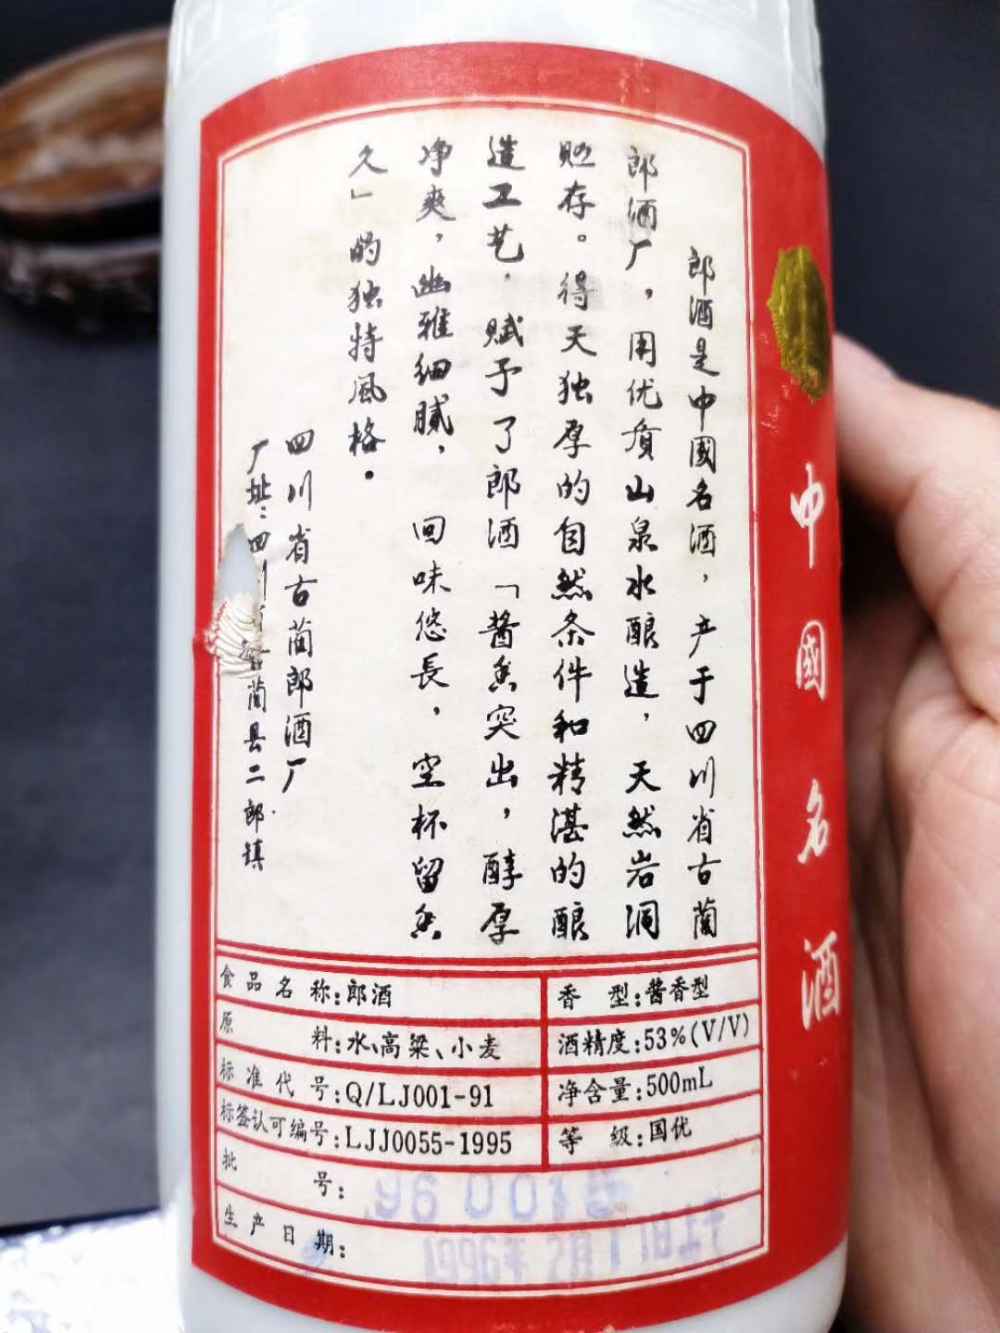 郎酒是中國名酒，产于四川省古蔺
郎酒厂，用优质山泉水酿造，天然岩洞
贮存。得天独厚的自然条件和精湛的酿
造工艺．赋予了郎酒「酱香突出，醇厚
净爽，幽雅细腻，回味悠長，空杯留香
久」的独特風格．
四川省古蔺郎酒厂
厂址：四川 蔺县二郎镇
中國名酒
食品名称：郎酒
香型：酱香型
原料：水、高粱、小麦
酒精度：53%(V/V)
标准代号：Q/LJ001-91
净含量：500mL
标签认可编号：LJJ0055-1995
等级：国优
批号：96 001
生产日期：1996年